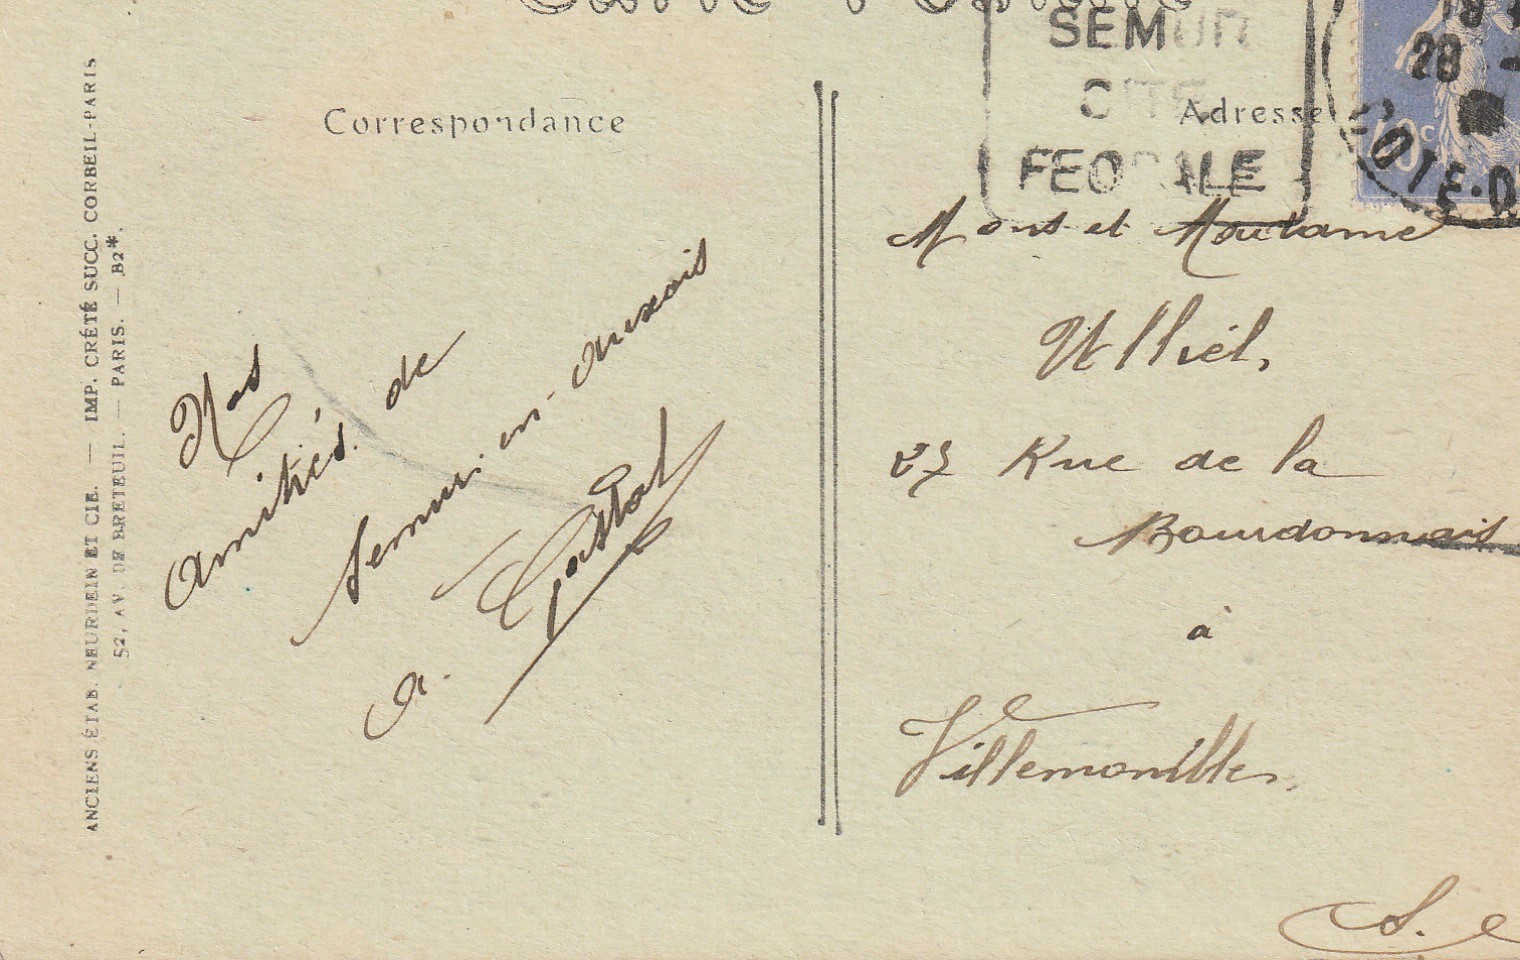 Carte Postale
SEMUR
CITE
FEODALE
19
28
COTE-D'
40c
Correspondance
Adresse
ANCIENS ÉTAB. NEURDEIN ET CIE. — IMP. CRÉTÉ SUCC. CORBEIL-PARIS
52, AV. DE BRETEUIL. — PARIS. — B2*.
Nos
Amitiés de
Semur-en-Auxois
A.
Mons et Madame
Ulliel,
27 Rue de la
Bourdonnais
à
Villemomble
S.